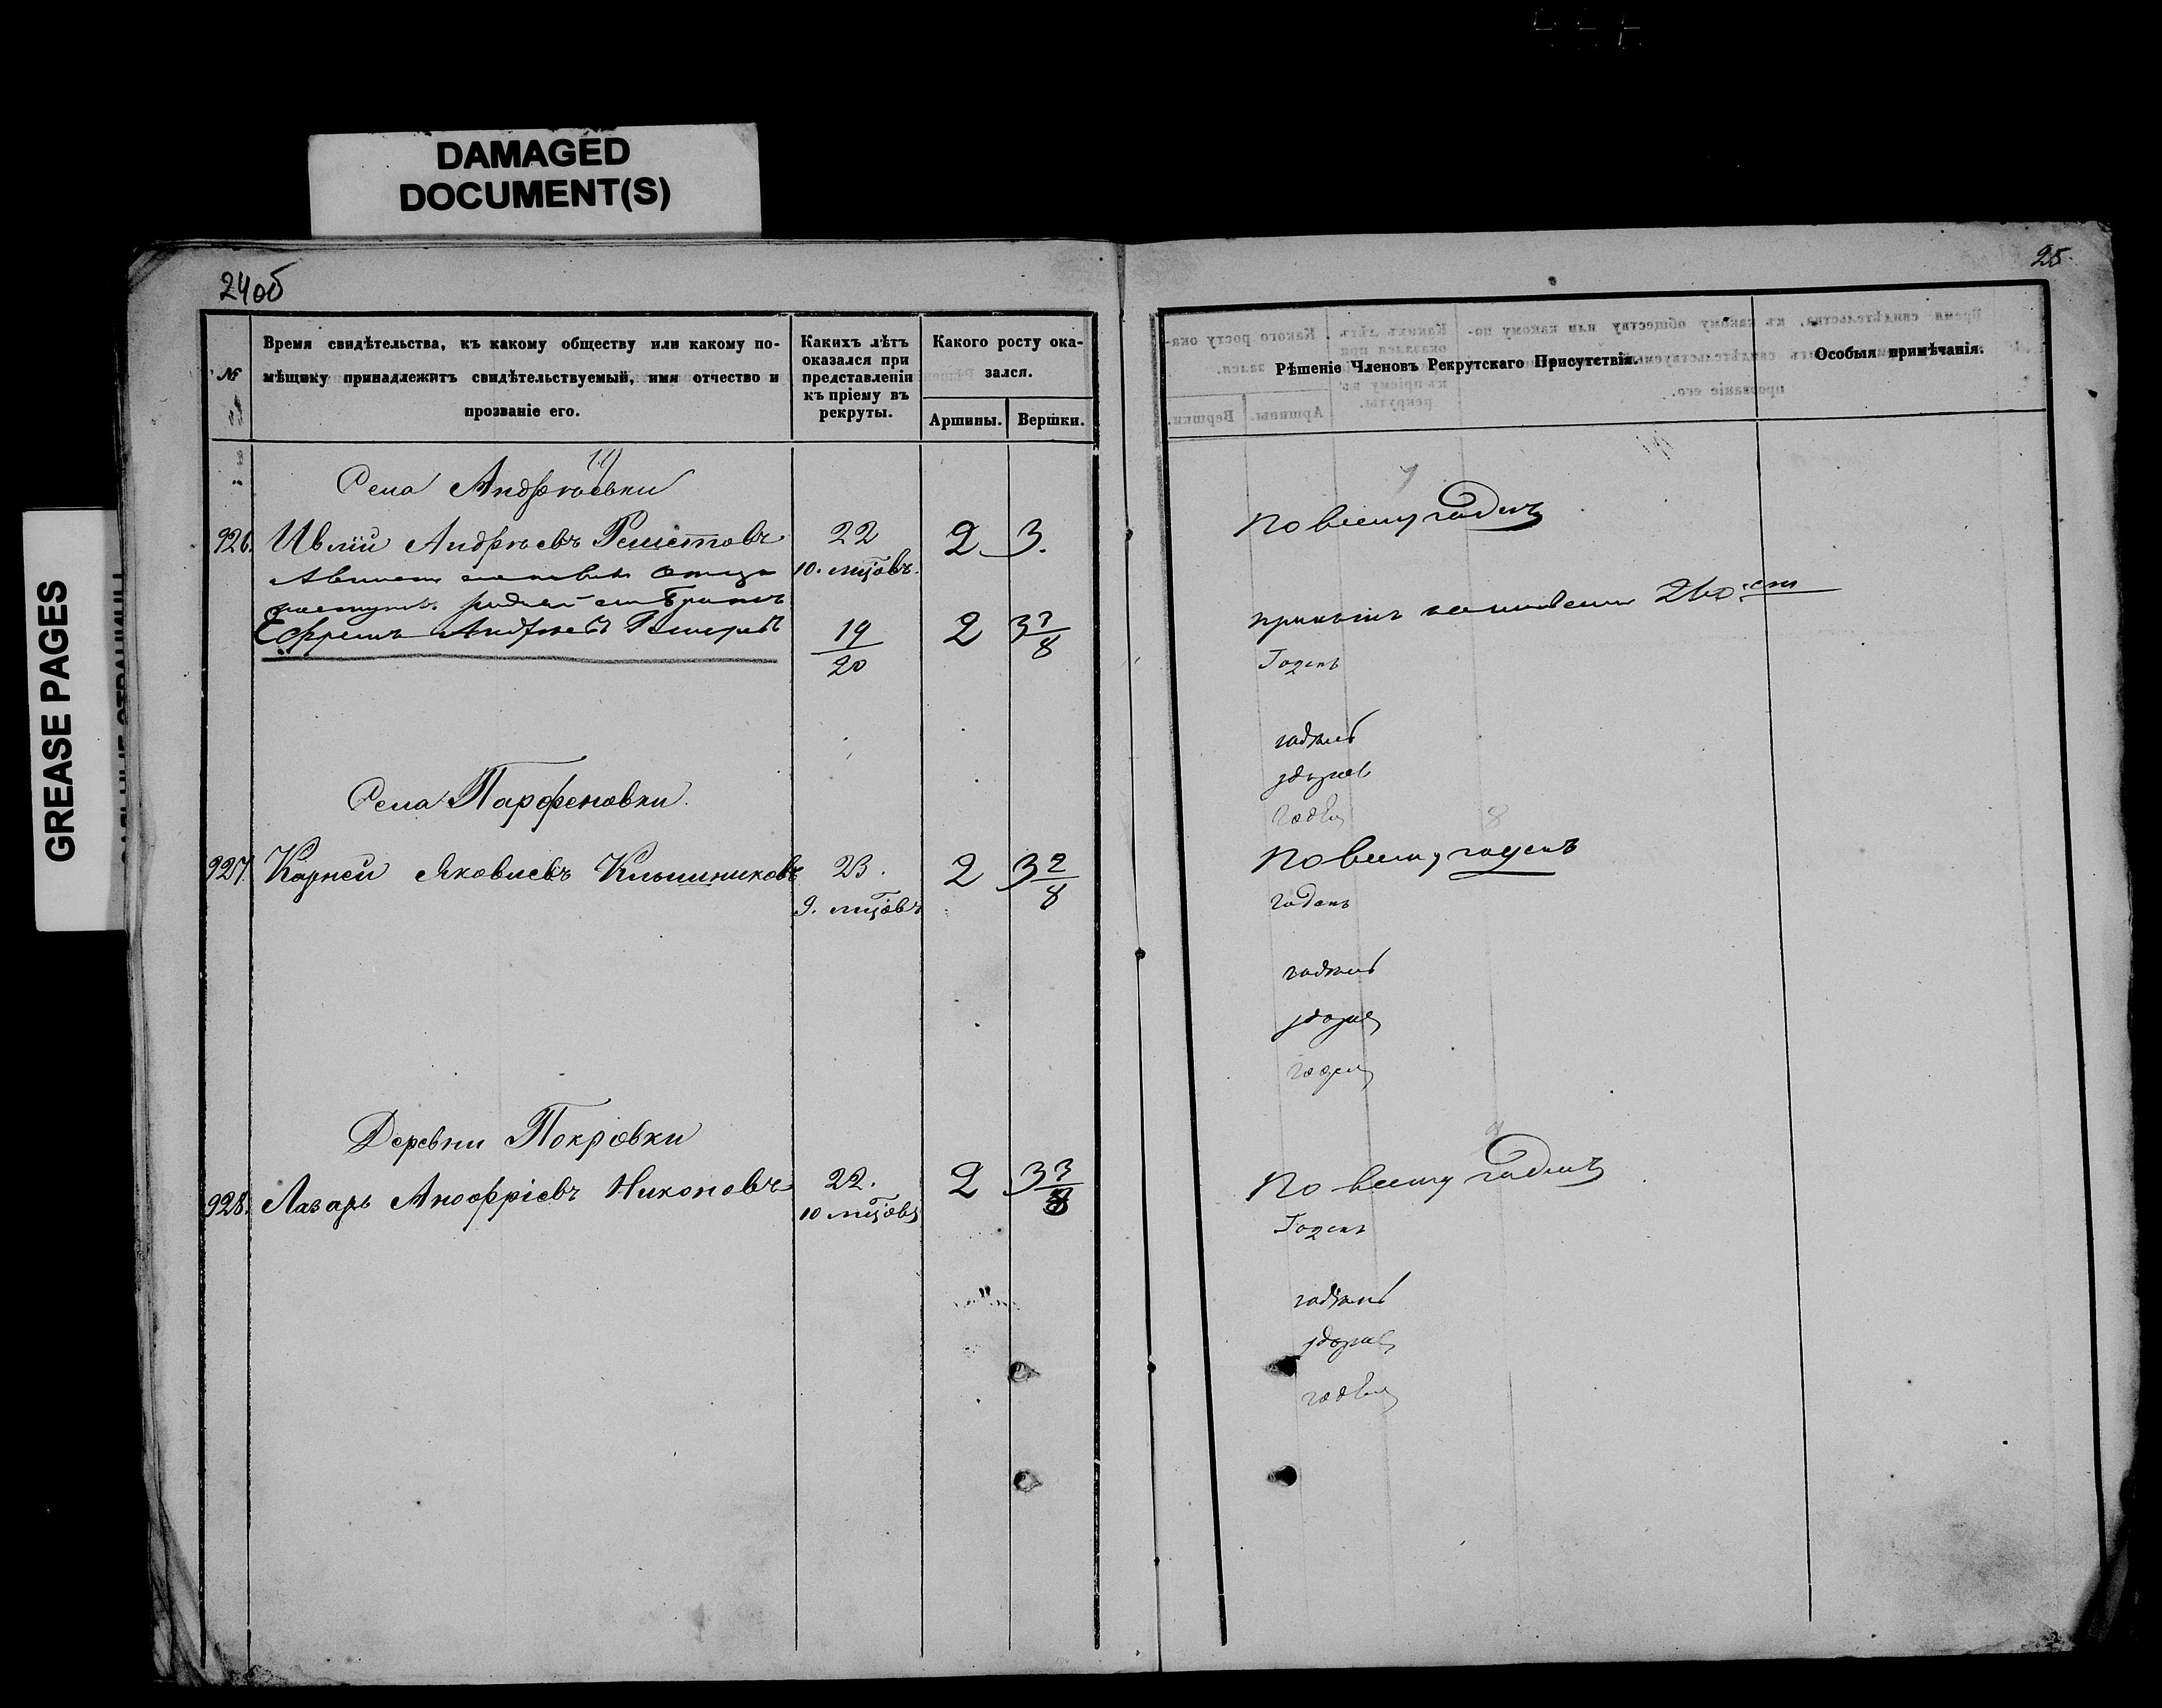 DAMAGED
DOCUMENT(S)
GREASE PAGES
24об
№
Время свидѣтельства, къ какому обществу или какому по-
мѣщику принадлежитъ свидѣтельствуемый, имя отчество и
прозваніе его.
Какихъ лѣтъ
оказался при
представленіи
къ пріему въ
рекруты.
Какого росту ока-
зался.
Аршины.
Вершки.
Села Андреевки
926. Ивлій Андреевъ Решетовъ 22 2 3.
10. мцовъ.
Ефремъ Андреевъ Решетовъ 19/20 2 3 3/8
Села Парфеновки.
927. Карней Яковлевъ 23. 2 3 2/8
9. мцовъ
Деревни Покровки
928. Лазарь Анофріевъ Никоновъ 22. 2 3 3/8
10 мцовъ
25.
Рѣшеніе Членовъ Рекрутскаго Присутствія.
Особыя примѣчанія.
По всему годенъ
принятъ
Годенъ
годенъ
здоровъ
годенъ
По всему годенъ
годенъ
годенъ
здоровъ
годенъ
По всему годенъ
Годенъ
годенъ
здоровъ
годенъ